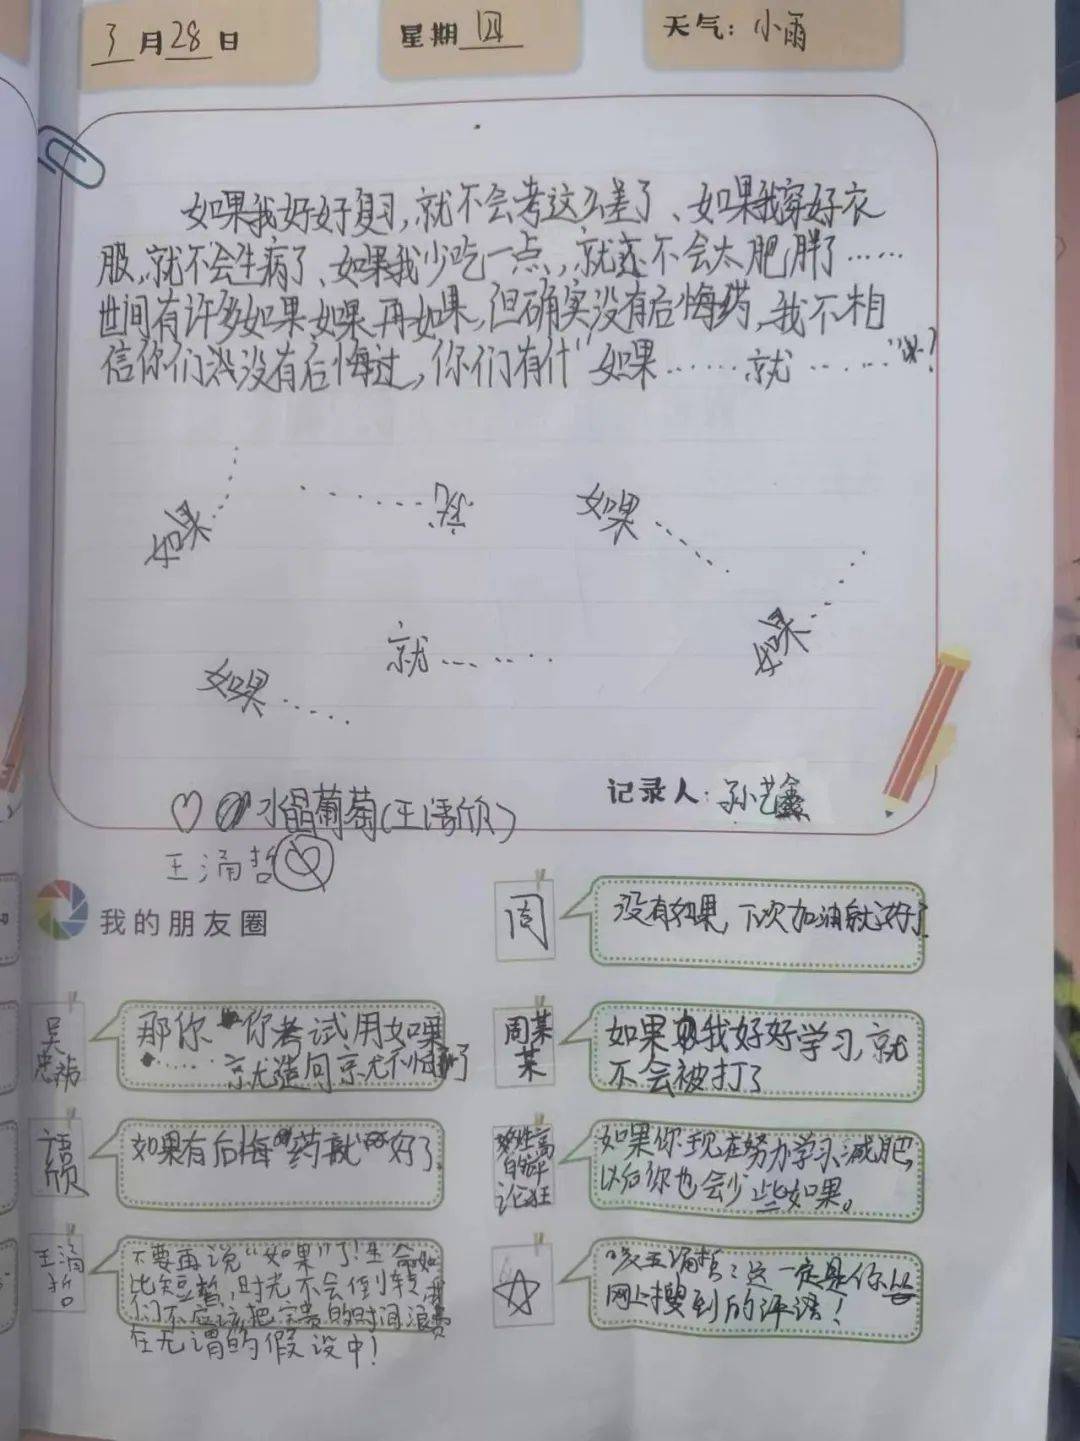 3月28日 星期四 天气：小雨
如果我好好复习，就不会考这么差了、如果我穿好衣
服，就不会生病了、如果我少吃一点，就还不会太肥胖了……
世间有许多如果如果再如果，但确实没有后悔药，我不相
信你们没有后悔过，你们有什"如果……就……"?
如果……
……就
如果……
如果……
就……
如果……
记录人：孙艺鑫
水晶葡萄(王语欣)
王涌哲
我的朋友圈
周
没有如果，下次加油就好了
吴忠祐
那你"你考试用如果
……就造句就不怕了
周某某
如果我好好学习，就
不会被打了
语欣
如果有后悔药就好了
论狂
如果你现在努力学习、减肥，
以后你也会少些如果。
王涌哲
不要再说"如果"了！生命如
此短暂，时光不会倒转，我
们不应该把宝贵的时间浪费
在无谓的假设中！
这一定是你
网上搜到的评语！